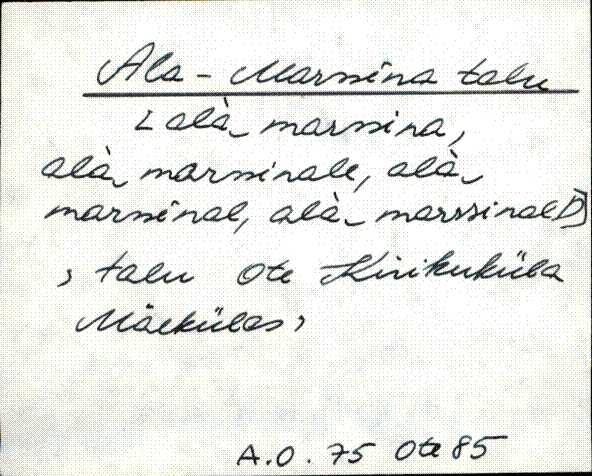 Ala-Marssina talu
[alà‿ marssina,
alà‿ marssinale, alà‿
marssinal, alà‿ marssinalᴅ]
, talu Ote Kirikuküla
Mäeküläs,
A.O. 75 Ote 85